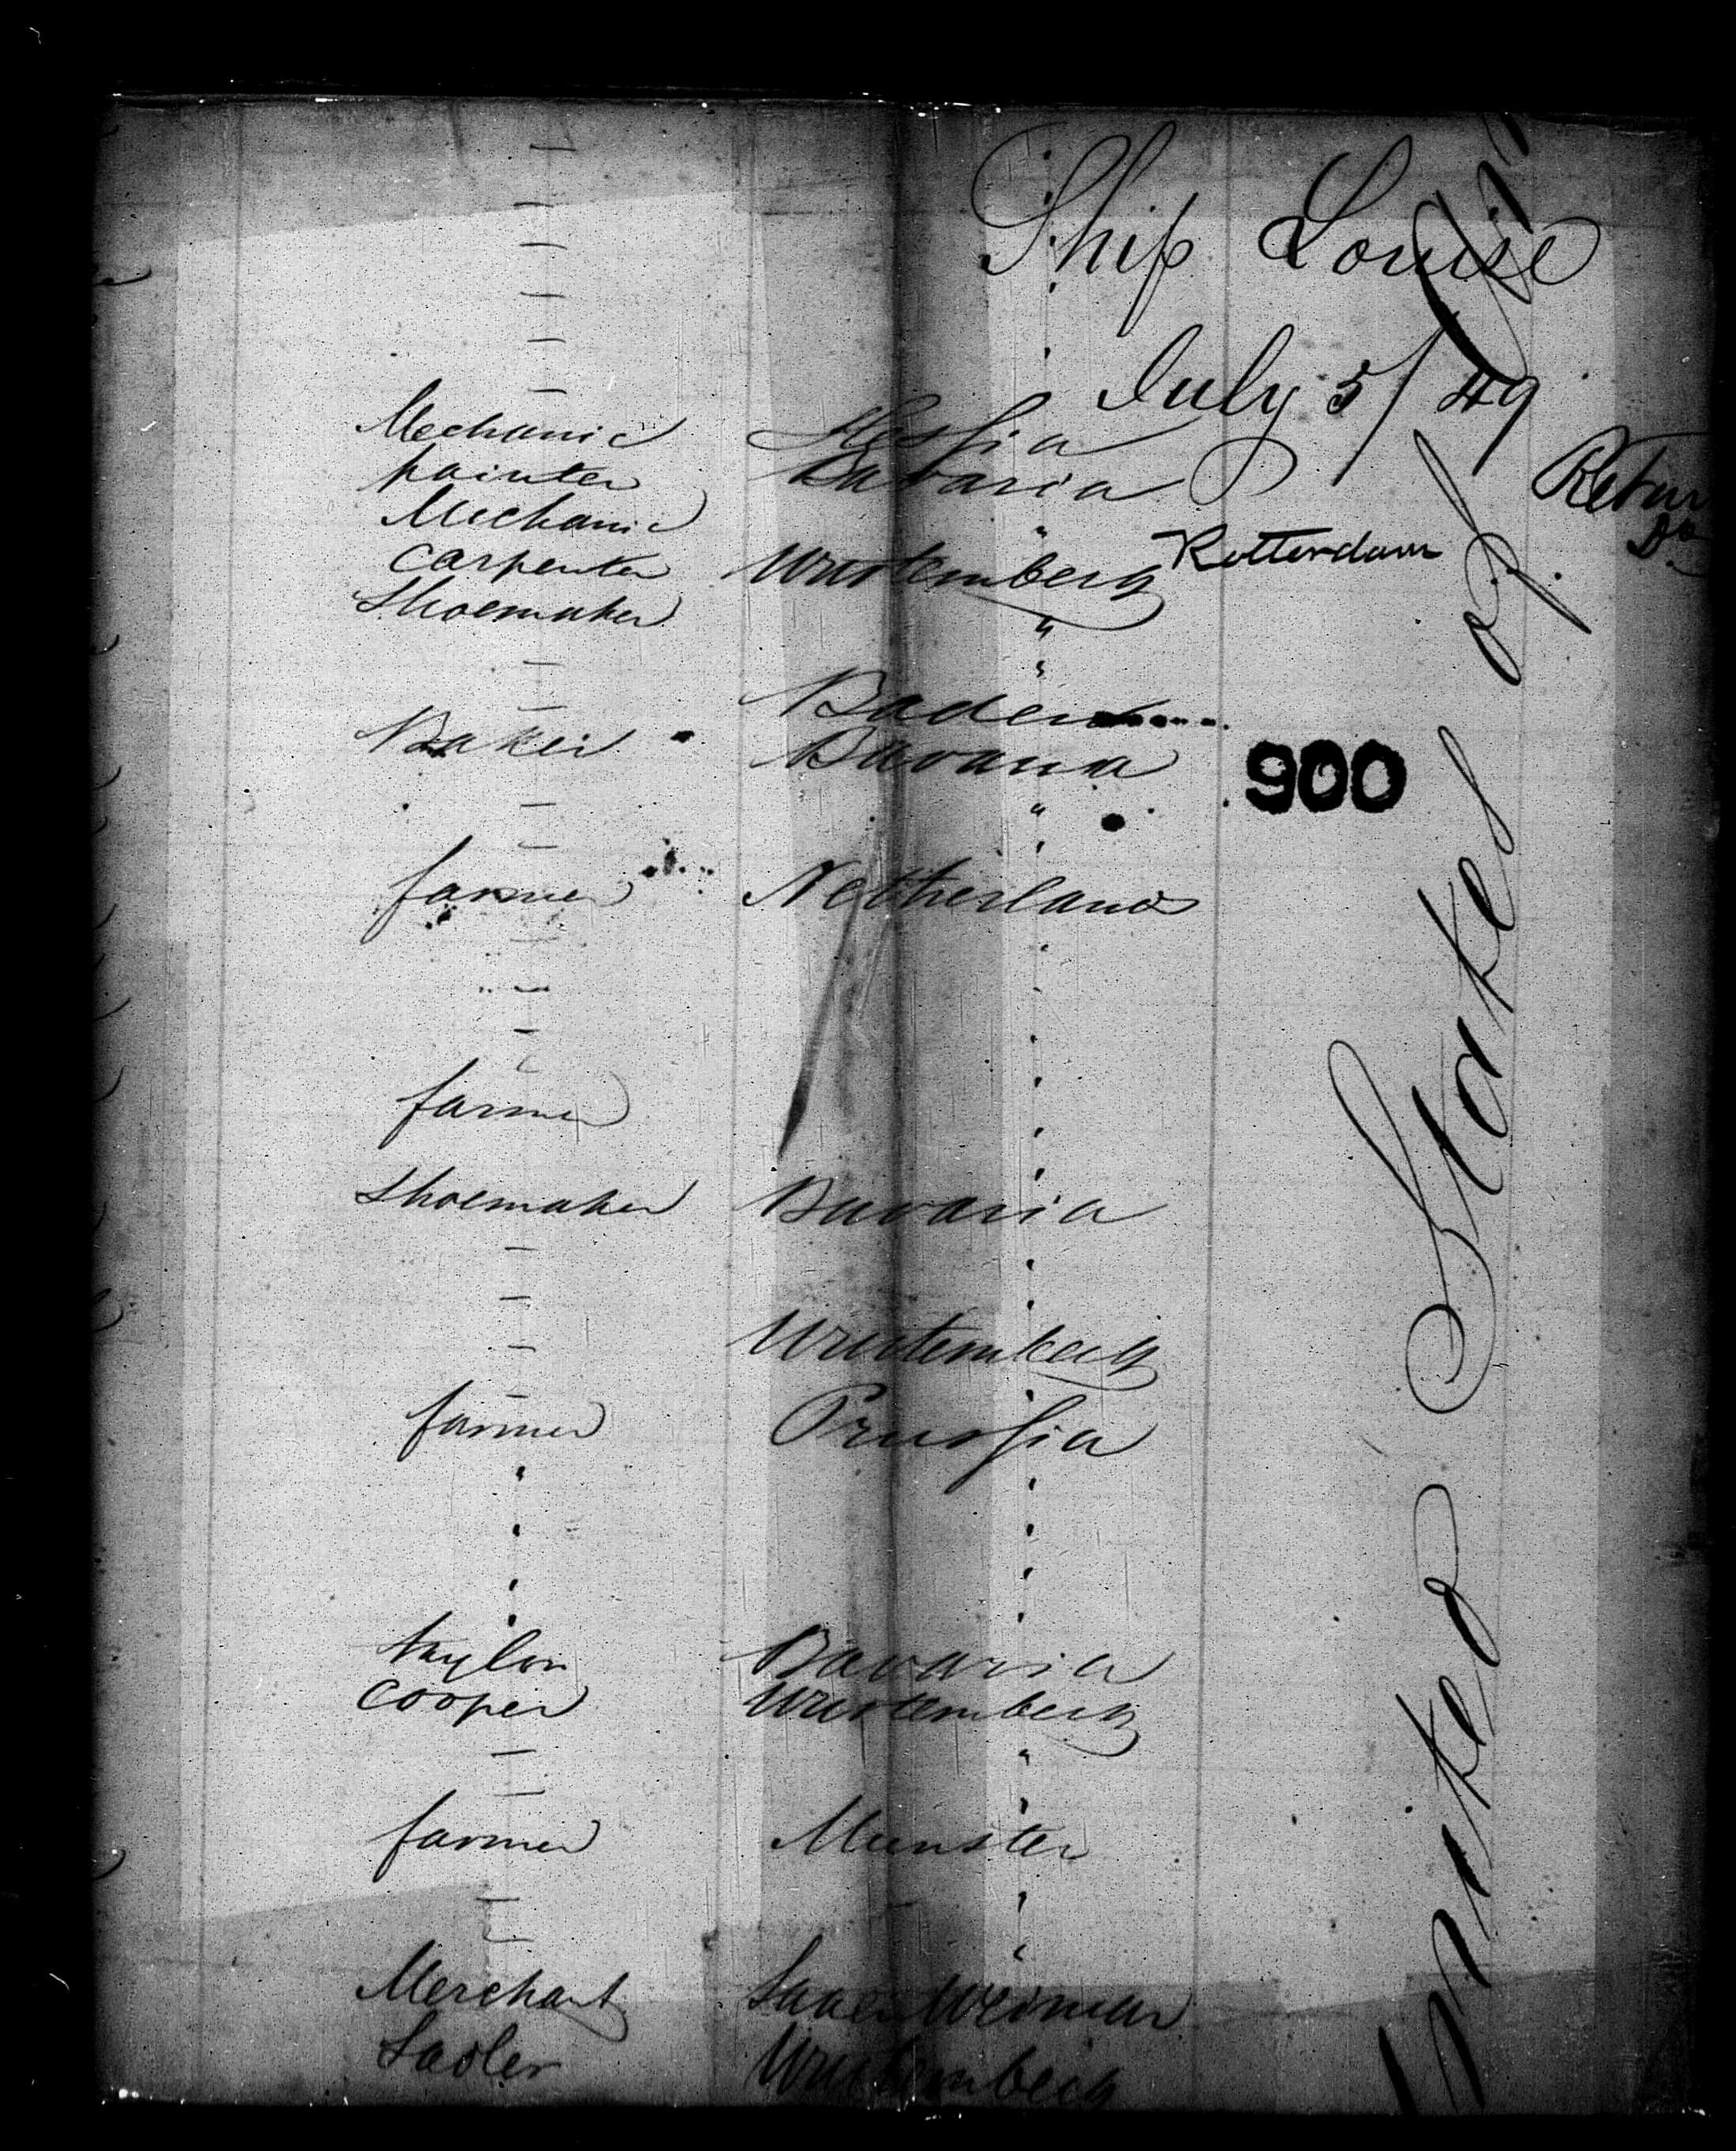 Ship Louise
July 5/49
Mechanic Hessia
painter Bavaria
Mechanic "
Rotterdam
carpenter Wurtemberg
Shoemaker "
— "
— Baden
Baker Bavaria
900
— "
farmer Netherlands
farmer "
Shoemaker Bavaria
— Wurtemberg
farmer Prussia
taylor Bavaria
cooper Wurtemberg
— "
farmer Munster
Merchant Saxen Weimar
Sadler Wurtemberg
United States of
Retur
Do